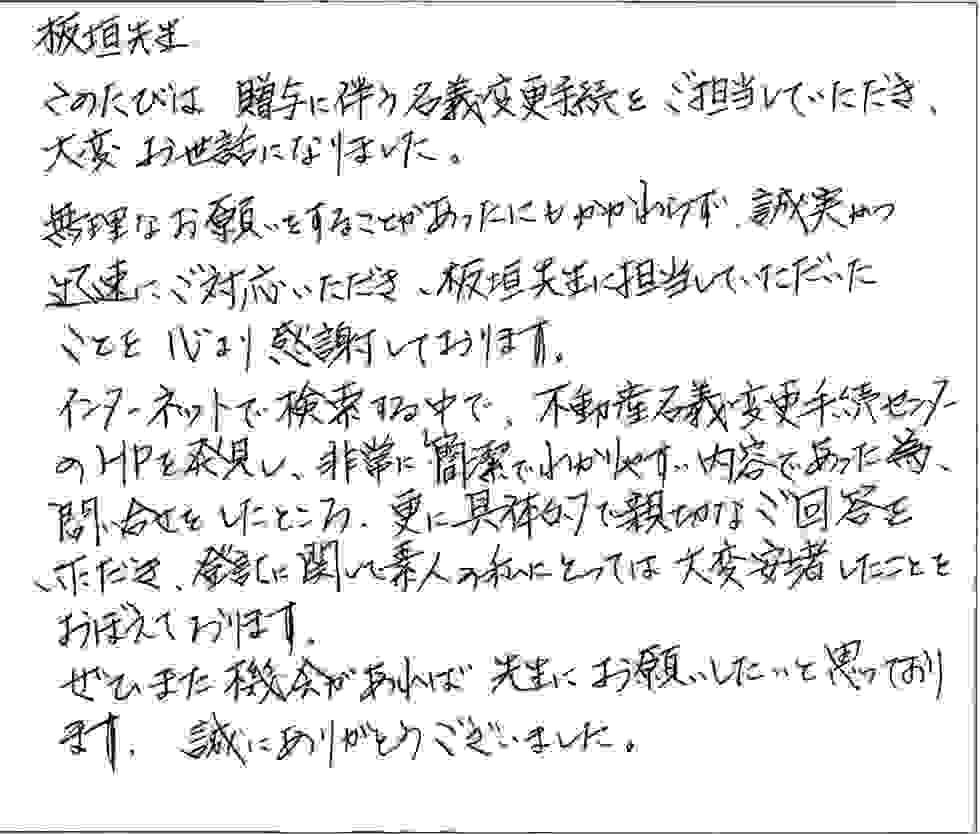 板垣先生
このたびは 贈与に伴う名義変更手続を ご担当していただき、
大変 お世話になりました。
無理なお願いをすることがあったにもかかわらず、誠実かつ
迅速にご対応いただき、板垣先生に担当していただいた
ことを 心より 感謝しております。
インターネットで検索する中で、不動産名義変更手続センター
のHPを発見し、非常に簡潔でわかりやすい内容であった為、
問い合せをしたところ、更に具体的で親切なご回答を
いただき、登記に関して素人の私にとっては大変安堵したことを
おぼえております。
ぜひまた機会があれば 先生にお願いしたいと思っており
ます。 誠にありがとうございました。